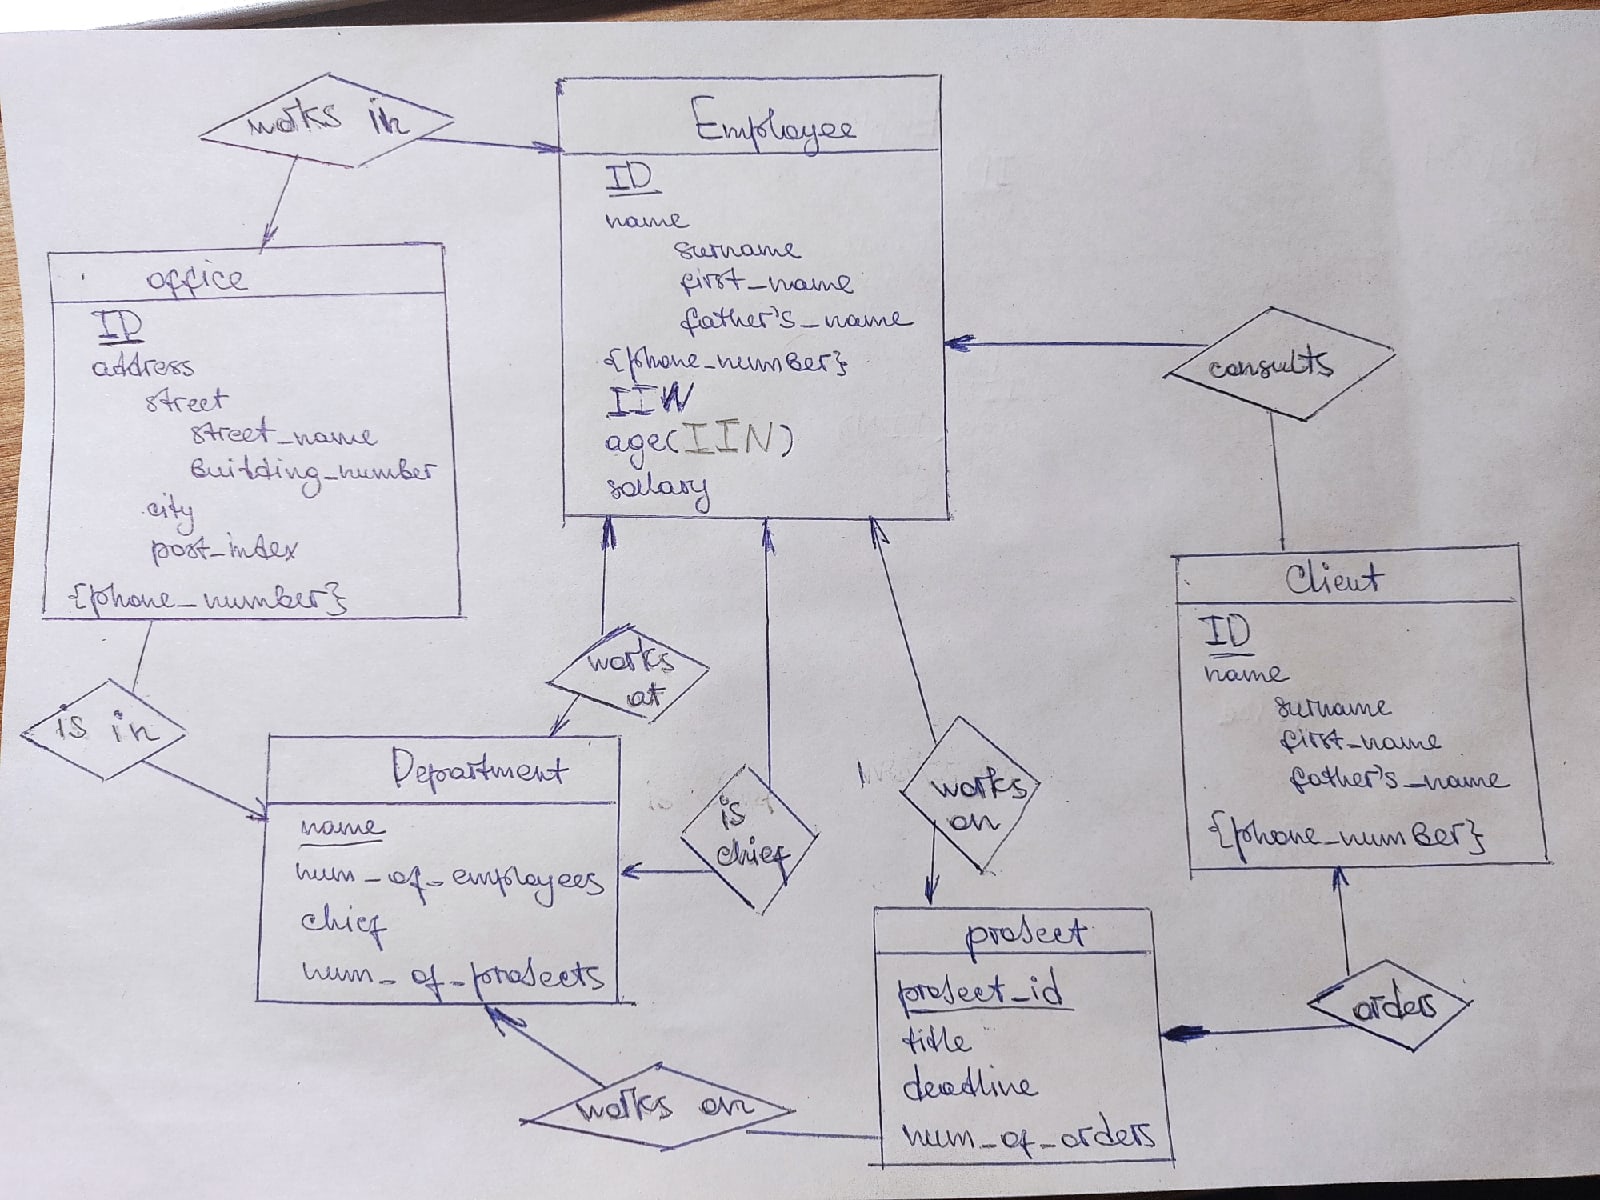 works in
Employee
ID
name
surname
first_name
father's_name
{phone_number}
IIN
age(IIN)
sallary
office
ID
address
street
street_name
building_number
city
post_index
{phone_number}
consults
Client
ID
name
surname
first_name
father's_name
{phone_number}
is in
works
at
Department
name
num_of_employees
chief
num_of_projects
is
chief
works
on
project
project_id
title
deadline
num_of_orders
orders
works on